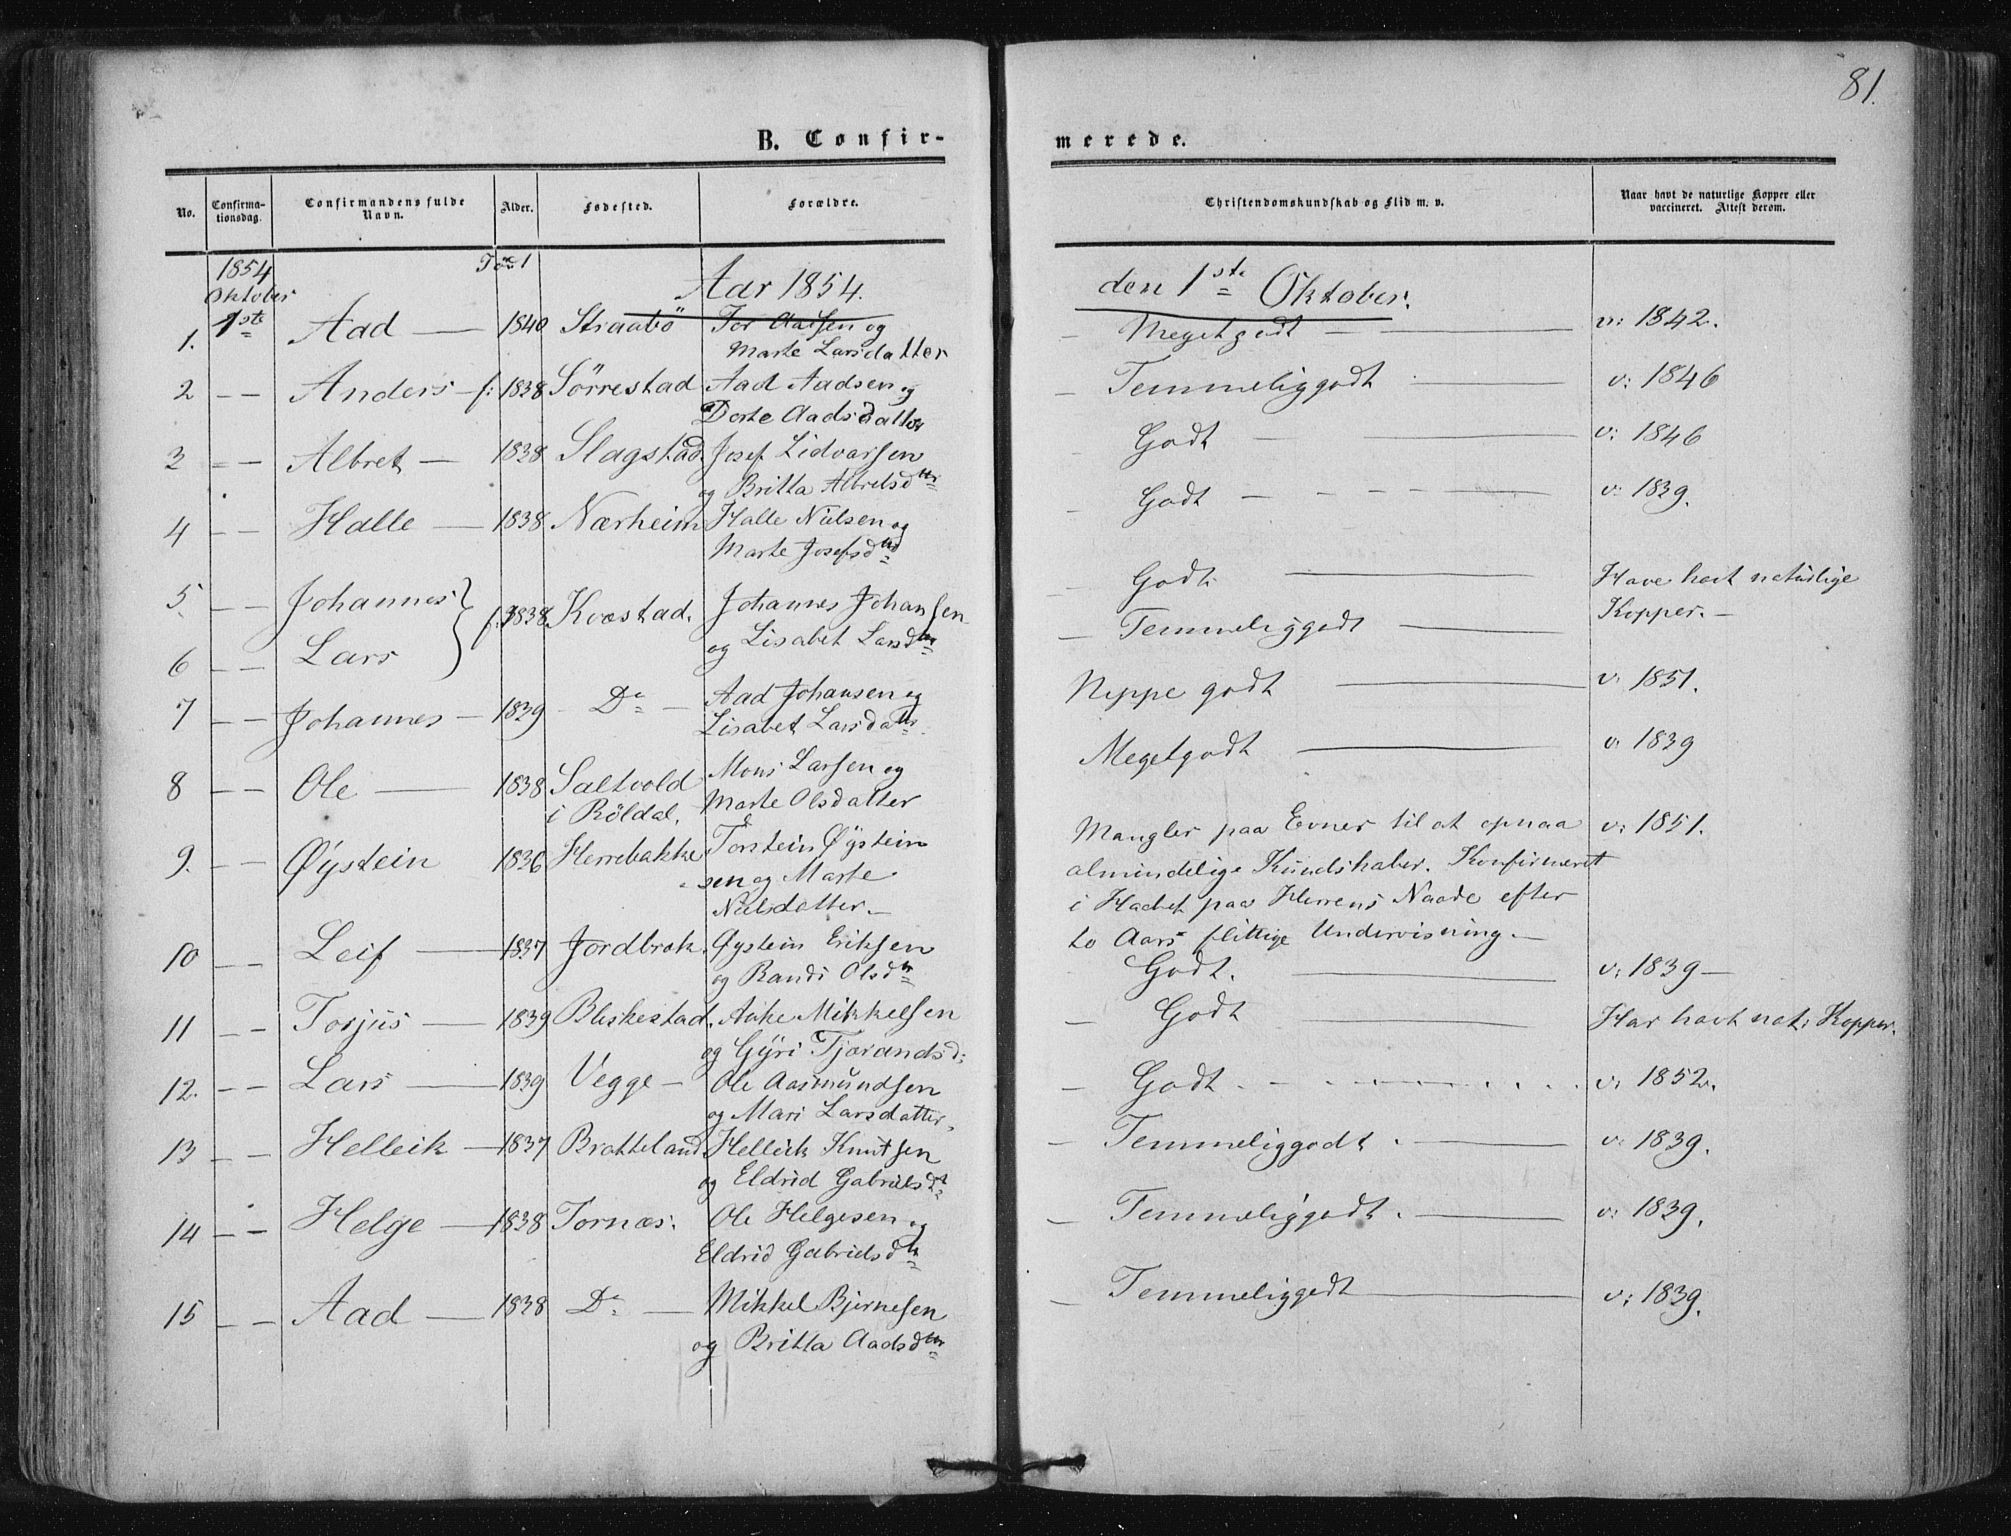 81.
B. Confir-
merede.
No.
Confirma-
tionsdag.
Confirmandens fulde
Navn.
Alder.
Fødested.
Forældre.
Christendomskundskab og Flid m. v.
Naar havt de naturlige Kopper eller
vaccineret. Attest derom.
1854
Oktober
1ste
Aar 1854.
den 1ste Oktober.
1. Aad — 1840 Straabö Tor Aadsen og
Marte Larsdatter
Megetgodt — v: 1842.
2 — — Anders — f: 1838 Sörrestad Aad Aadsen og
Dorte Aadsdatter
Temmeliggodt — v: 1846
3 — — Albret — 1838 Slagstad. Josef Lidvarsen
og Britta Albretsdtr
Godt — v: 1846
4 — — Halle — 1838 Nærheim Halle Nielsen og
Marte Josefsdtr
Godt — v: 1839.
5. — — Johannes } f: 1838. Kvæstad. Johannes Johansen
6 — — Lars
og Lisabet Larsdtr
Godt — Have havt naturlige
Temmeliggodt — Kopper. —
7 — — Johannes — 1839 — Do — Aad Johansen og
Lisabet Larsdatr
Neppe godt — v. 1851.
8 — — Ole — 1838 Saltvold Mons Larsen og
i Röldal. Marte Olsdatter
Megetgodt — v. 1839
9. — — Øystein 1836 Herrebakke Torstein Øystein
sen og Marte
Nielsdatter. —
Mangler paa Evner til at opnaa v: 1851.
almindelige Kundskaber. Konfirmeret
i Haabet paa Herrens Naade efter
to Aars flittige Undervisning. —
10 — — Leif — 1837 Jordbrek. Øystein Eriksen
og Randi Olsdtr
Godt. — v: 1839 —
11 — — Torjus — 1839 Bleskestad. Aake Mikkelsen
og Gyri Tjorandsd:
Godt — Har havt nat: Kopper.
12. — — Lars — 1839 Vegge — Ole Aasmundsen
og Mari Larsdatter.
Godt — v. 1852.
13 — — Helleik — 1837 Bratteland Helleik Knutsen
og Eldrid Gabrielsdt
Temmeliggodt. — v. 1839.
14 — — Helge — 1838 Tornæs. Ole Helgesen og
Eldrid Gabrielsdtr
Temmeliggodt. — v: 1839.
15 — — Aad — 1838 Do — Mikkel Bjørnesen
og Britta Aadsdtr
Temmeliggodt — v: 1839.